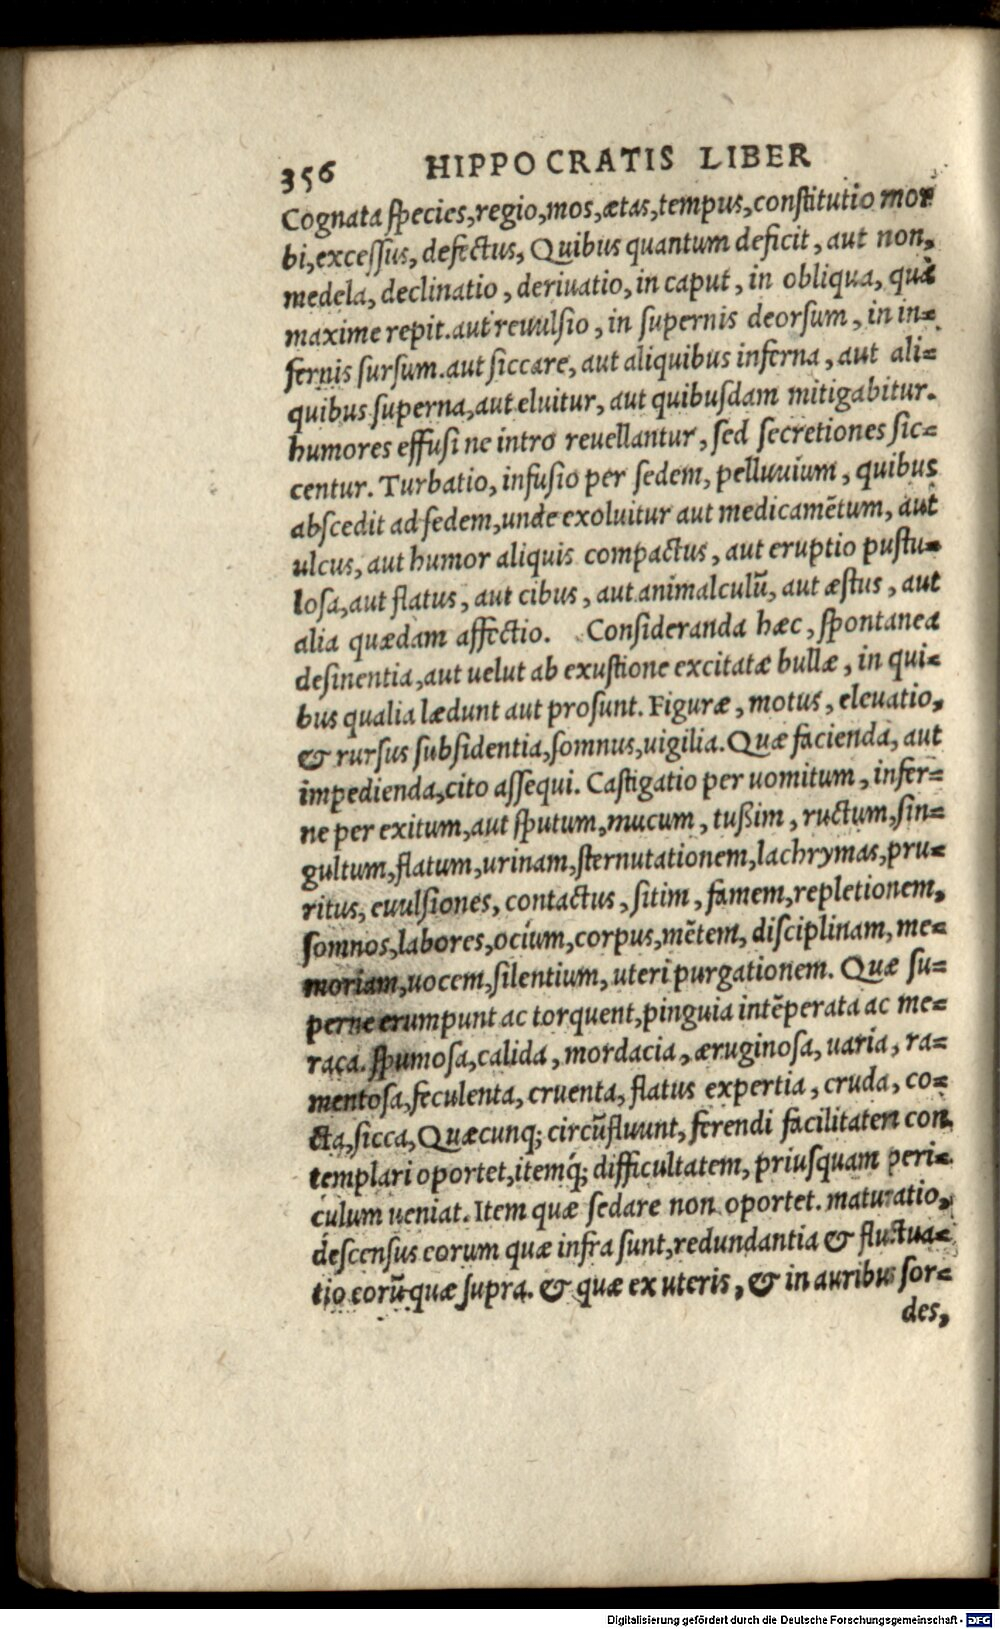 356 HIPPOCRATIS LIBER
Cognata species, regio, mos, ætas, tempus, constitutio mor
bi, excessus, defectus, Quibus quantum deficit, aut non,
medela, declinatio, deriuatio, in caput, in obliqua, quà
maxime repit. aut reuulsio, in supernis deorsum, in in=
fernis sursum. aut siccare, aut aliquibus inferna, aut ali=
quibus superna, aut eluitur, aut quibusdam mitigabitur.
humores effusi ne intro reuellantur, sed secretiones sic=
centur. Turbatio, infusio per sedem, pelluuium, quibus
abscedit ad sedem, unde exoluitur aut medicamẽtum, aut
ulcus, aut humor aliquis compactus, aut eruptio pustu=
losa, aut flatus, aut cibus, aut animalculũ, aut æstus, aut
alia quædam affectio. Consideranda hæc, spontanea
desinentia, aut uelut ab exustione excitatæ bullæ, in qui=
bus qualia lædunt aut prosunt. Figuræ, motus, eleuatio,
& rursus subsidentia, somnus, uigilia. Quæ facienda, aut
impedienda, cito assequi. Castigatio per uomitum, infer=
ne per exitum, aut sputum, mucum, tußim, ructum, sin=
gultum, flatum, urinam, sternutationem, lachrymas, pru=
ritus, euulsiones, contactus, sitim, famem, repletionem,
somnos, labores, ocium, corpus, mẽtem, disciplinam, me=
moriam, uocem, silentium, uteri purgationem. Quæ su=
perne erumpunt ac torquent, pinguia intẽperata ac me=
raca. spumosa, calida, mordacia, æruginosa, uaria, ra=
mentosa, feculenta, cruenta, flatus expertia, cruda, co=
cta, sicca, Quæcunq; circũfluunt, ferendi facilitatem con
templari oportet, itemq́; difficultatem, priusquam peri=
culum ueniat. Item quæ sedare non oportet. maturatio,
descensus eorum quæ infra sunt, redundantia & fluctua=
tio eorũ quæ supra. & quæ ex uteris, & in auribus sor=
des,
Digitalisierung gefördert durch die Deutsche Forschungsgemeinschaft - DFG